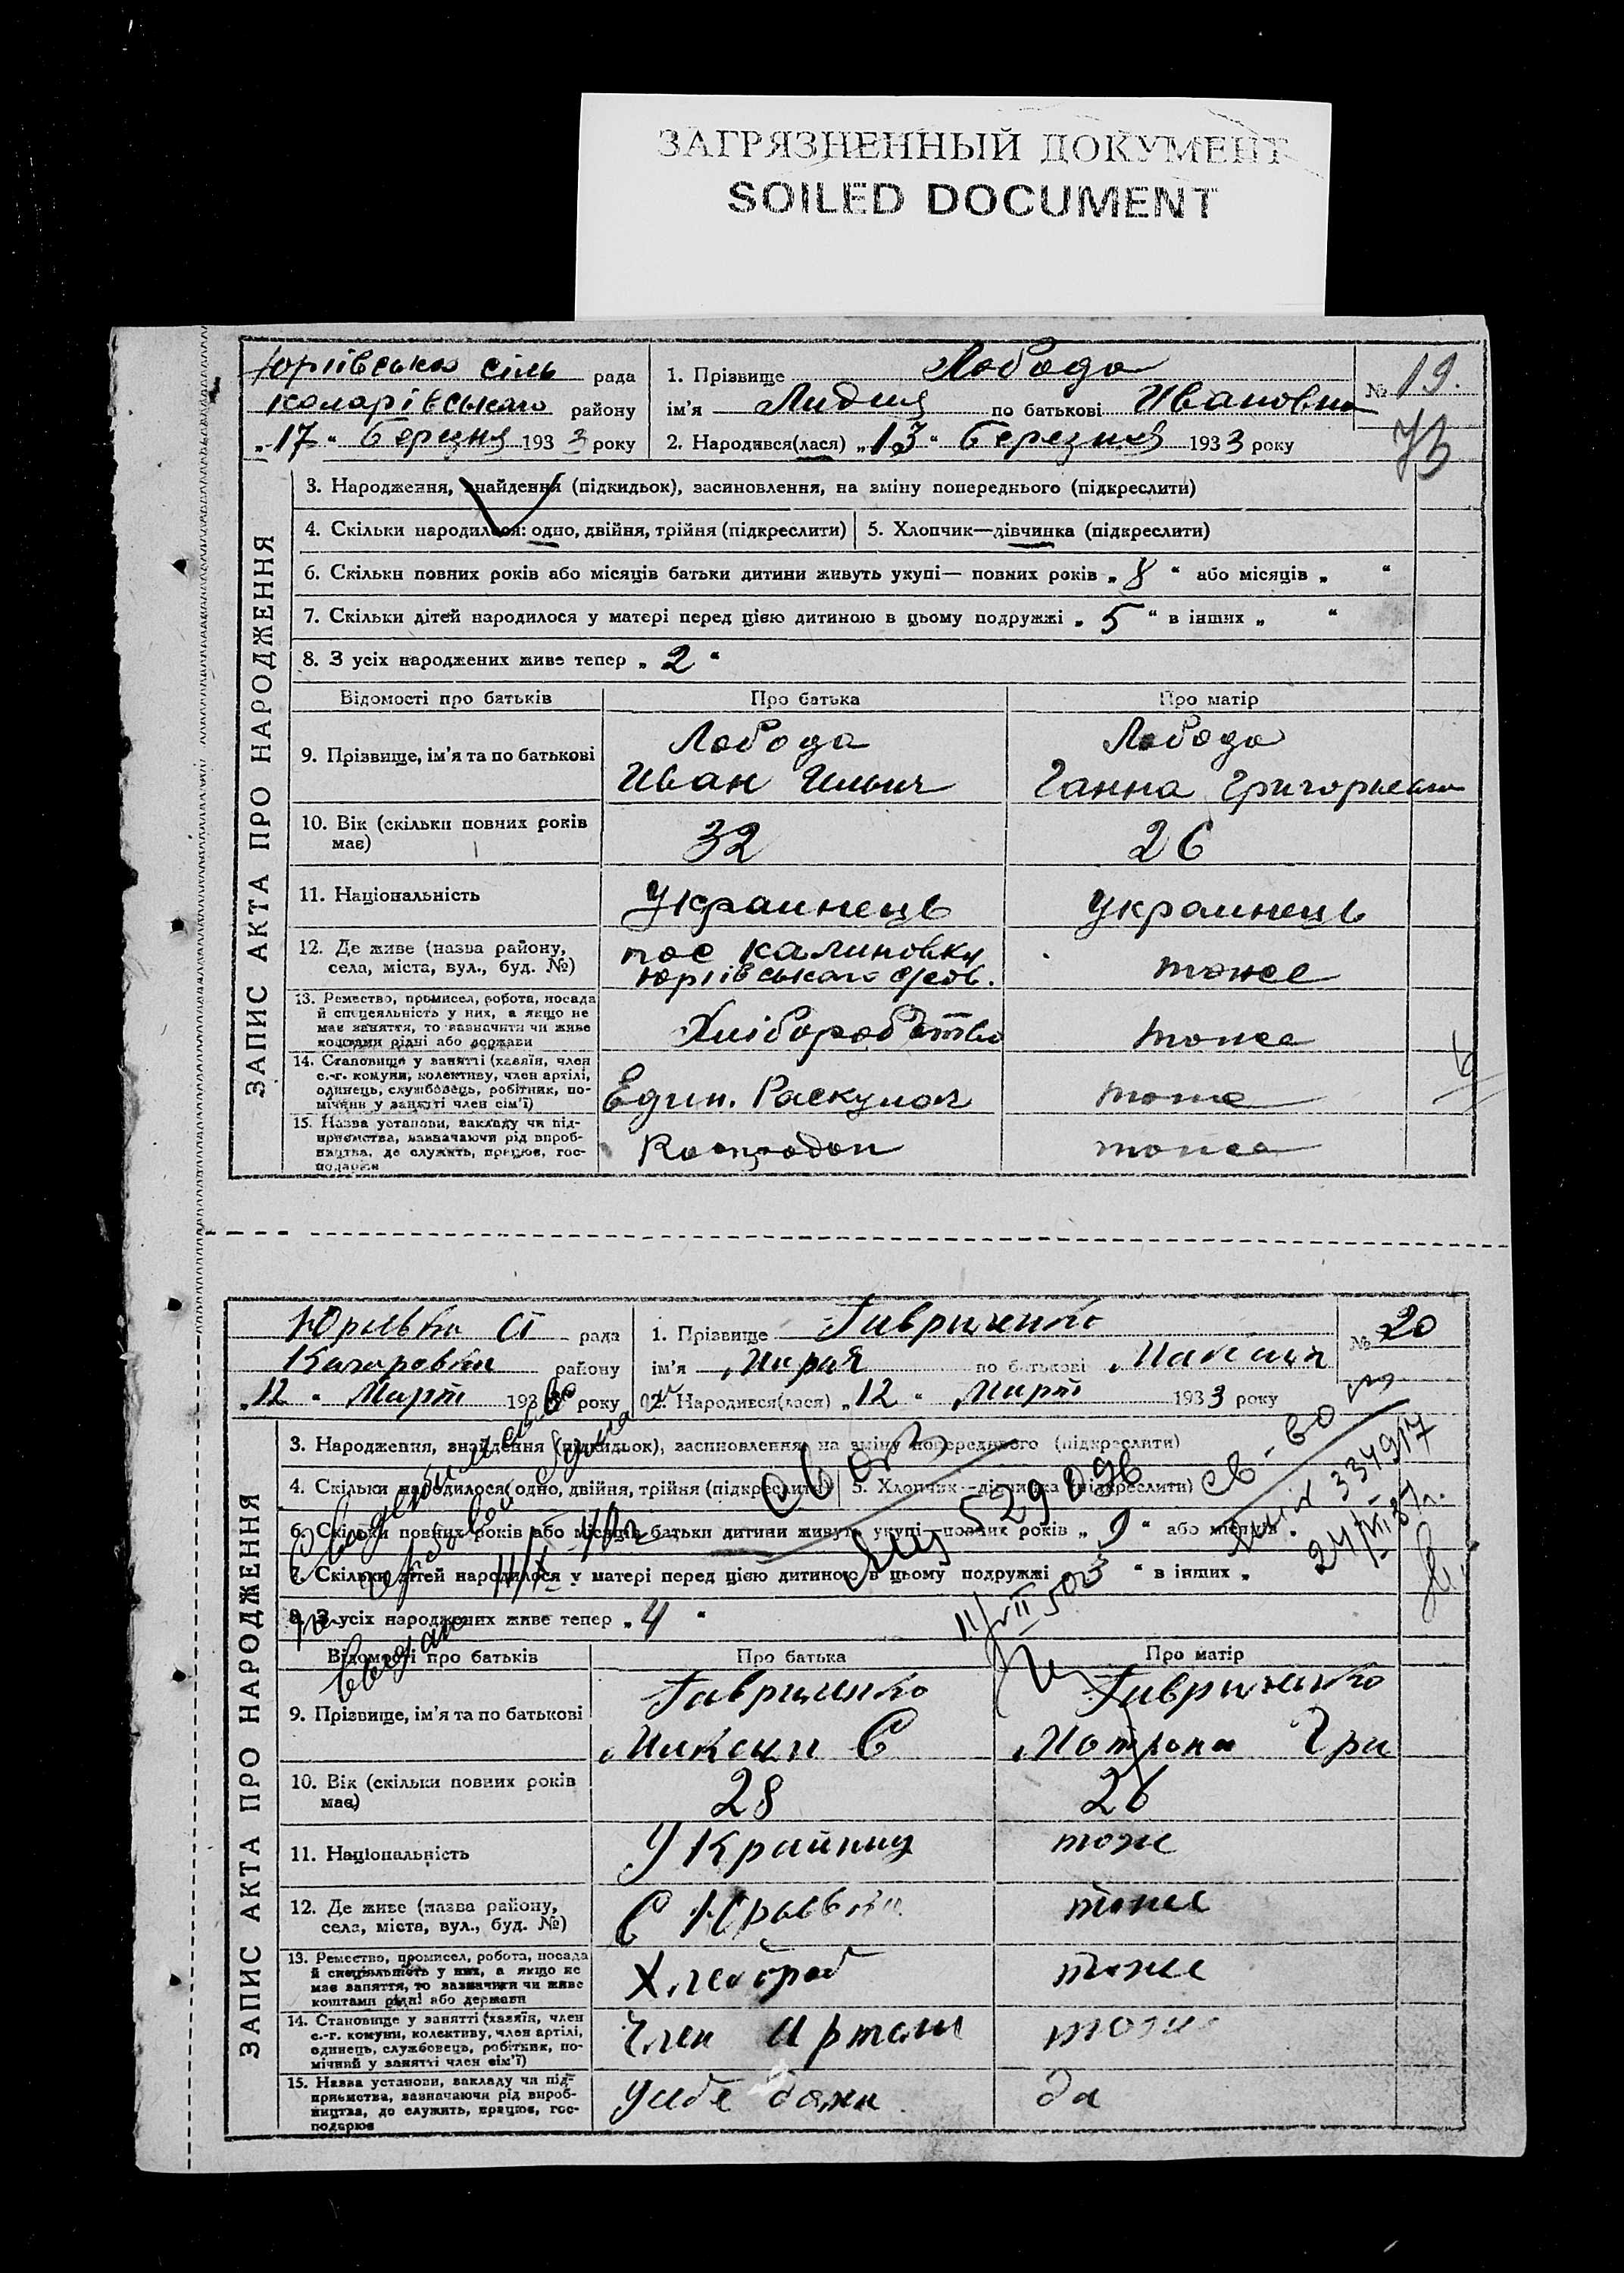 ЗАГРЯЗНЕННЫЙ ДОКУМЕНТ
SOILED DOCUMENT
Юріївська сіль рада
коларівського району
„17“ березня 1933 року
1. Прізвище Лобода
ім'я Лидия по батькові Ивановна
2. Народився(лася) „13“ березня 1933 року
№ 19.
ЗАПИС АКТА ПРО НАРОДЖЕННЯ
3. Народження, знайдення (підкидьок), засиновлення, на зміну попереднього (підкреслити)
4. Скільки народилося: одно, двійня, трійня (підкреслити) 5. Хлопчик—дівчинка (підкреслити)
6. Скільки повних років або місяців батьки дитини живуть укупі— повних років „8“ або місяців „ “
7. Скільки дітей народилося у матері перед цією дитиною в цьому подружжі „5“ в інших „ “
8. З усіх народжених живе тепер „2“
Відомості про батьків Про батька Про матір
9. Прізвище, ім'я та по батькові
Лобода
Иван Ильич
Лобода
Ганна Григорьевна
10. Вік (скільки повних років
має)
32 26
11. Національність Украинець Украинець
12. Де живе (назва району,
села, міста, вул., буд. №)
пос Калиновку
Юріївського
тоже
13. Ремество, промисел, робота, посада
й спецеяльність у них, а якщо не
має заняття, то зазначити чи живе
коштами рідні або держави
Хліборобство тоже
14. Становище у занятті (хазяїн, член
с.-г. комуни, колективу, член артілі,
одинець, службовець, робітник, по-
мічний у занятті член сім'ї)
Един. Раскулач тоже
15. Назва установи, закладу чи під-
приємства, зазначаючи рід вироб-
ництва, де служить, працює, гос-
подарює
тоже
Юрьевка СІ рада
району
„12“ Март 193 року
1. Прізвище Гавриченко
ім'я Мария по батькові Максим
2. Народився(лася) „12“ Март 1933 року
№ 20
ЗАПИС АКТА ПРО НАРОДЖЕННЯ
3. Народження, знайдення (підкидьок), засиновлення, на зміну попереднього (підкреслити)
4. Скільки народилося: одно, двійня, трійня (підкреслити) 5. Хлопчик—дівчинка (підкреслити)
6. Скільки повних років або місяців батьки дитини живуть укупі—повних років „9“ або місяців „
7. Скільки дітей народилося у матері перед цією дитиною в цьому подружжі „3“ в інших „
8. З усіх народжених живе тепер „4“
Відомості про батьків Про батька Про матір
9. Прізвище, ім'я та по батькові
Гавриченко
Максим С
Гавриченко
Мотрона Гри
10. Вік (скільки повних років
має)
28 26
11. Національність Украйниц тоже
12. Де живе (назва району,
села, міста, вул., буд. №)
С Юрьевка тоже
13. Ремество, промисел, робота, посада
й спецяльність у них, а якщо не
має заняття, то зазначити чи живе
коштами рідні або держави
Хлебороб тоже
14. Становище у занятті (хазяїн, член
с.-г. комуни, колективу, член артілі,
одинець, службовець, робітник, по-
мічний у занятті член сім'ї)
Член Артели тоже
15. Назва установи, закладу чи під-
приємства, зазначаючи рід вироб-
ництва, де служить, працює, гос-
подарює